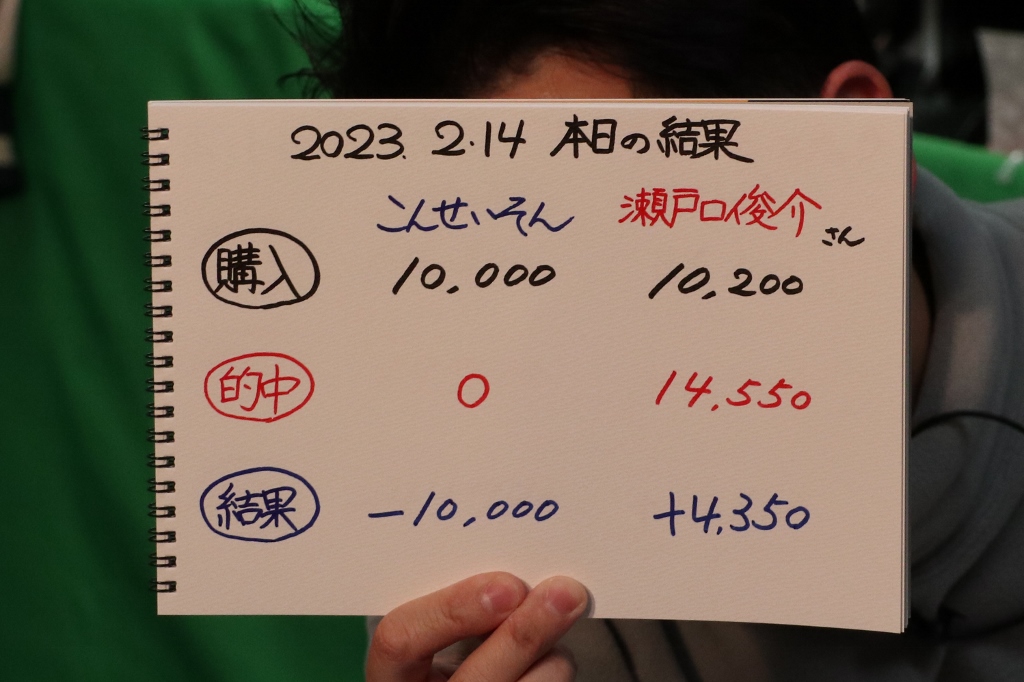 2023. 2.14 本日の結果
こんせいそん 瀬戸口俊介さん
購入 10,000 10,200
的中 0 14,550
結果 -10,000 +4,350